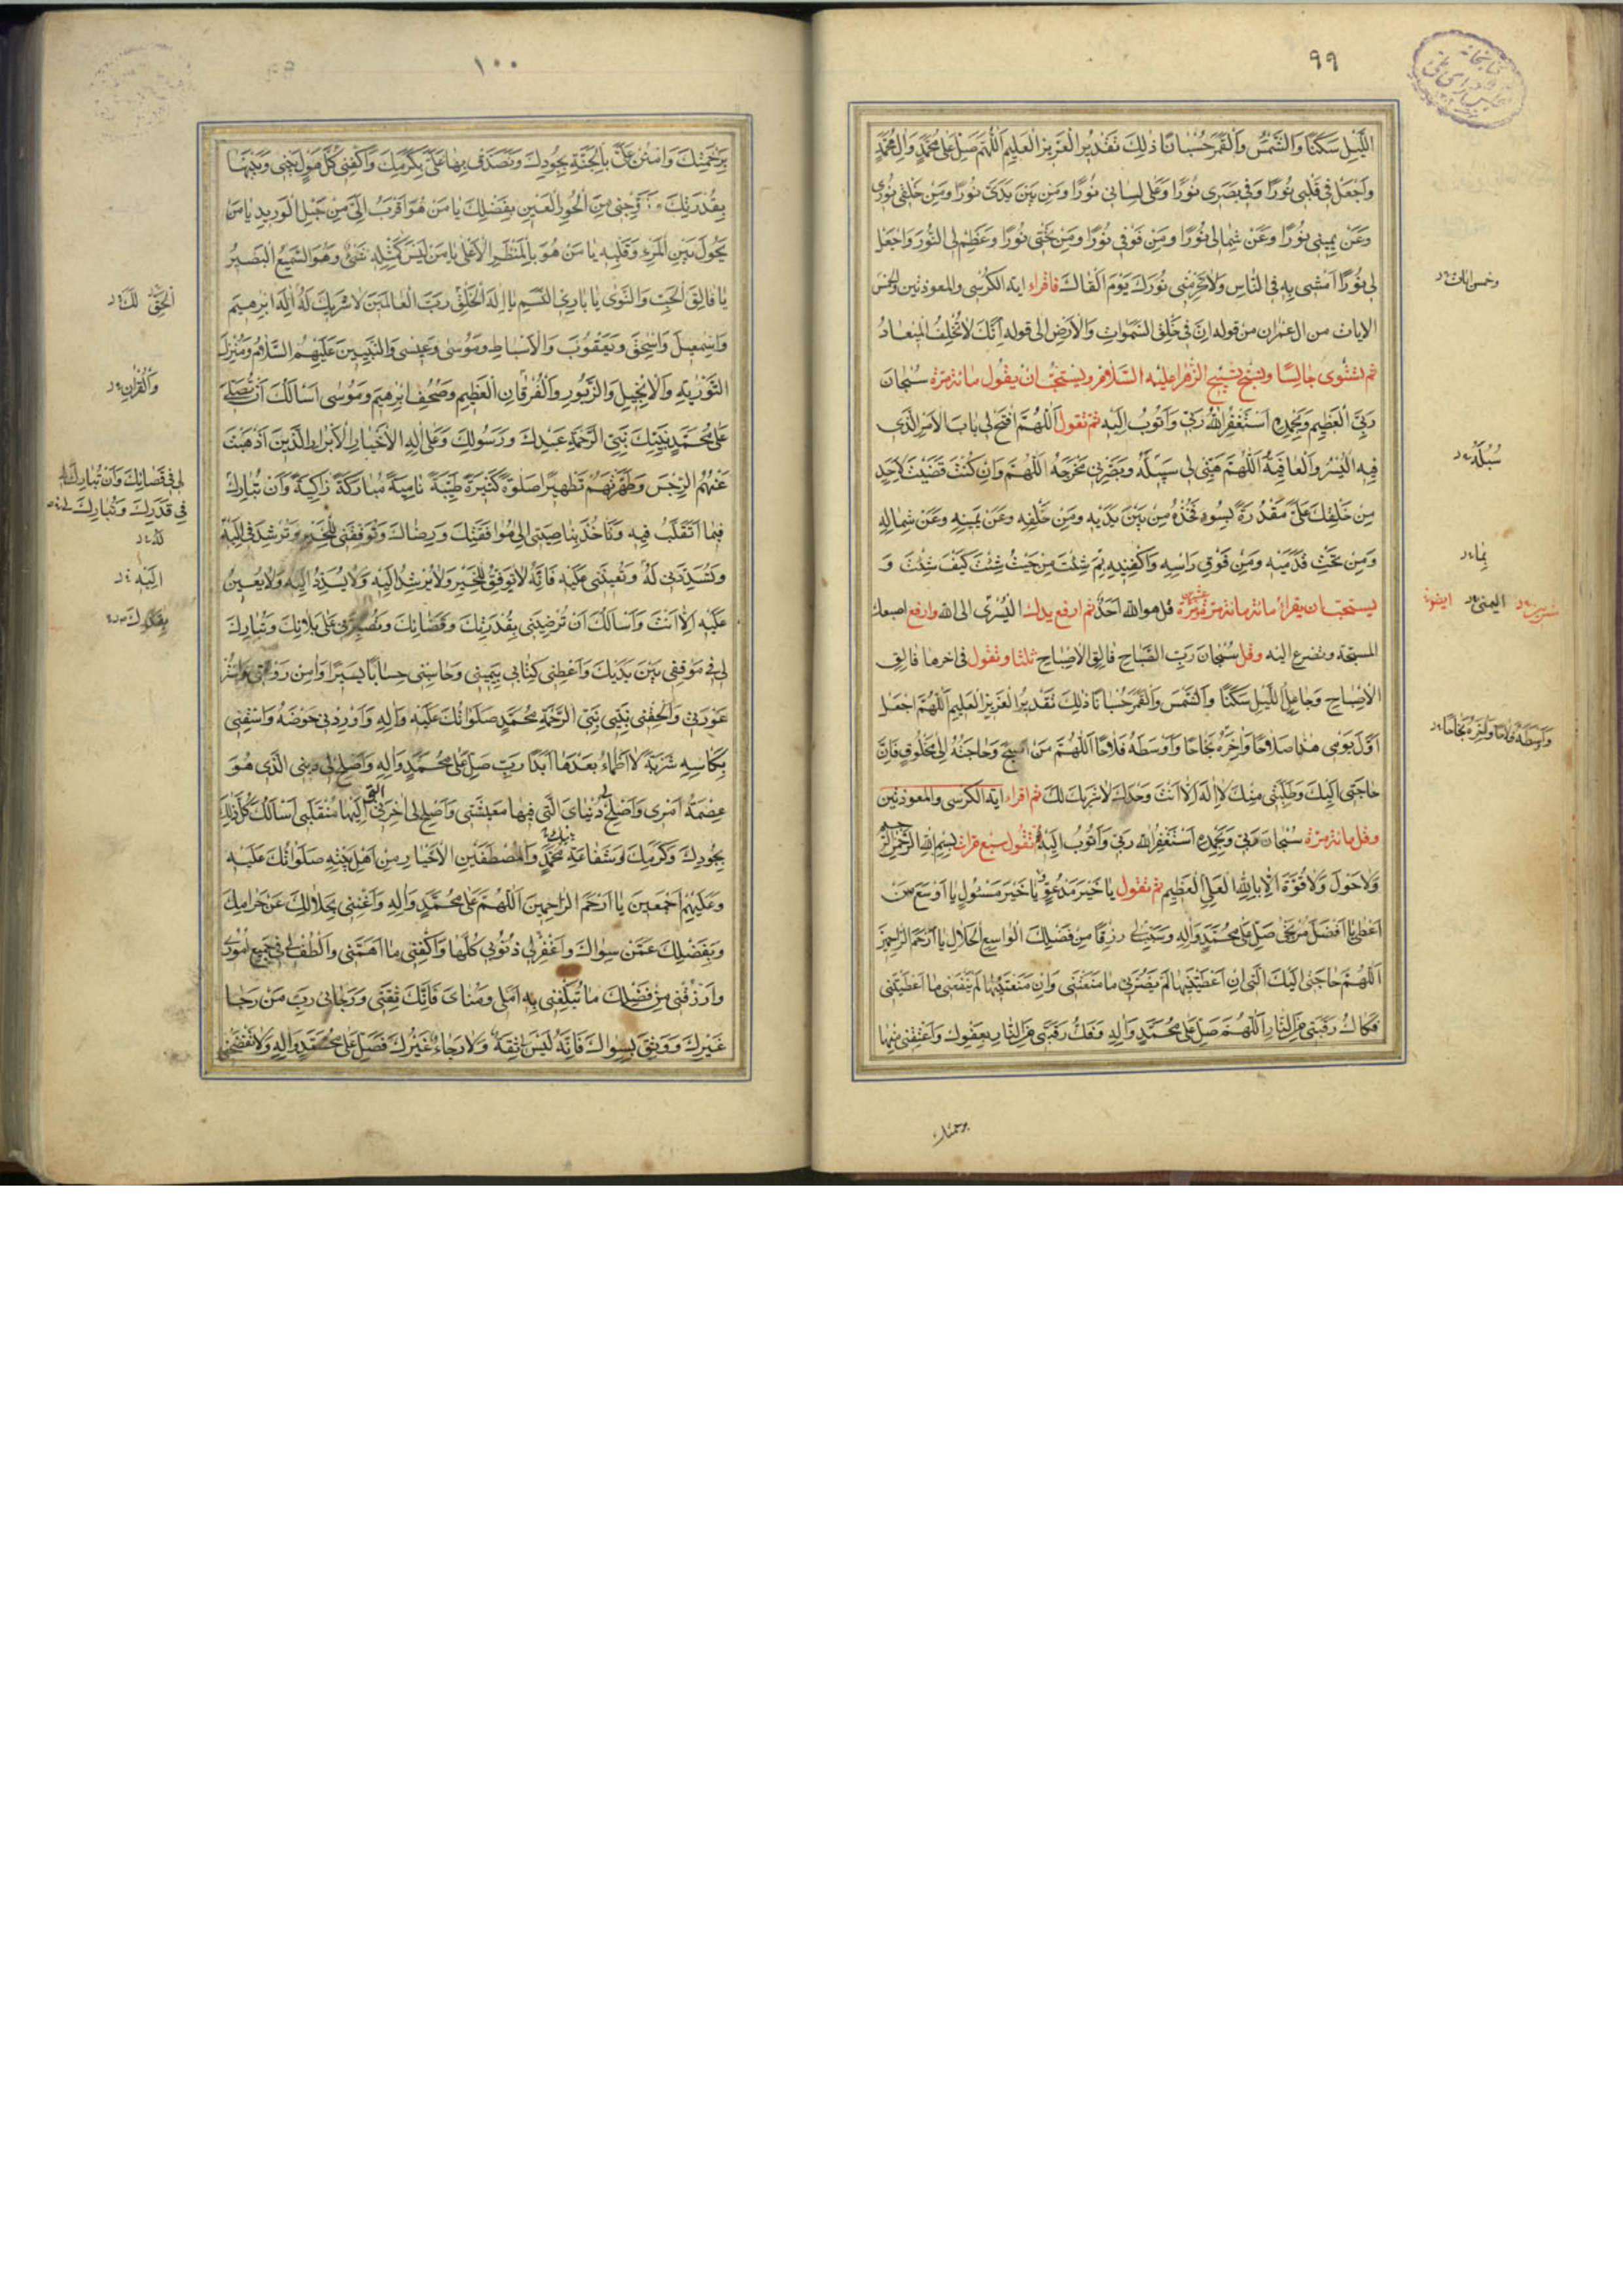 ٩٩
اللَّيْلِ سَكَنًا وَالشَّمْسَ وَالْقَمَرَ حُسْبَانًا ذٰلِكَ تَقْدِيرُ الْعَزِيزِ الْعَلِيمِ اَللّٰهُمَّ صَلِّ عَلٰى مُحَمَّدٍ وَاٰلِ مُحَمَّدٍ
وَاجْعَلْ فِى قَلْبِى نُورًا وَفِى بَصَرِى نُورًا وَعَلٰى لِسَانِى نُورًا وَمِنْ بَيْنِ يَدَىَّ نُورًا وَمِنْ خَلْفِى نُورًا
وَعَنْ يَمِينِى نُورًا وَعَنْ شِمَالِى نُورًا وَمِنْ فَوْقِى نُورًا وَمِنْ تَحْتِى نُورًا وَعَظِّمْ لِى النُّورَ وَاجْعَلْ
لِى نُورًا اَمْشِى بِهِ فِى النَّاسِ وَلَا تَحْرِمْنِى نُورَكَ يَوْمَ اَلْقَاكَ فاقراء اية الكرسى والمعوذتين والخمس
الايات من ال عمران من قوله اِنَّ فِى خَلْقِ السَّمٰوَاتِ وَالْاَرْضِ الى قوله اِنَّكَ لَا تُخْلِفُ الْمِيعَادَ
ثم تستوى جالسا وتسبح تسبيح الزهرا عليه السلام ويستحب ان يقول مائة مرة سُبْحَانَ
رَبِّىَ الْعَظِيمِ وَبِحَمْدِهِ اَسْتَغْفِرُ اللّٰهَ رَبِّى وَاَتُوبُ اِلَيْهِ ثم تقول اَللّٰهُمَّ افْتَحْ لِى بَابَ الْاَمْرِ الَّذِى
فِيهِ الْيُسْرُ وَالْعَافِيَةُ اَللّٰهُمَّ هَيِّئْ لِى سَبِيلَهُ وَبَصِّرْنِى مَخْرَجَهُ اَللّٰهُمَّ وَاِنْ كُنْتَ قَضَيْتَ لِاَحَدٍ
مِنْ خَلْقِكَ عَلَىَّ مَقْدُرَةً بِسُوءٍ فَخُذْهُ مِنْ بَيْنِ يَدَيْهِ وَمِنْ خَلْفِهِ وَعَنْ يَمِينِهِ وَعَنْ شِمَالِهِ
وَمِنْ تَحْتِ قَدَمَيْهِ وَمِنْ فَوْقِ رَاْسِهِ وَاكْفِنِيهِ بِمَ شِئْتَ مِنْ حَيْثُ شِئْتَ كَيْفَ شِئْتَ وَ
يستحب ان يقراء مائة مرة قل هو الله احد ثم ارفع يدك الْيُسْرٰى الى الله وارفع اصبعك
المسبحة وتضرع اليه وقل سُبْحَانَ رَبِّ الصَّبَاحِ فَالِقِ الْاِصْبَاحِ ثلثا وتقول فى اخرها فَالِقِ
الْاِصْبَاحِ وَجَاعِلِ اللَّيْلِ سَكَنًا وَالشَّمْسَ وَالْقَمَرَ حُسْبَانًا ذٰلِكَ تَقْدِيرُ الْعَزِيزِ الْعَلِيمِ اَللّٰهُمَّ اجْعَلْ
اَوَّلَ يَوْمِى هٰذَا صَلَاحًا وَاٰخِرَهُ نَجَاحًا وَاَوْسَطَهُ فَلَاحًا اَللّٰهُمَّ مَنْ اَصْبَحَ وَحَاجَتُهُ اِلٰى مَخْلُوقٍ فَاِنَّ
حَاجَتِى اِلَيْكَ وَطَلِبَتِى مِنْكَ لَا اِلٰهَ اِلَّا اَنْتَ وَحْدَكَ لَا شَرِيكَ لَكَ ثم اقراء اية الكرسى والمعوذتين
وقل مائة مرة سُبْحَانَ رَبِّى وَبِحَمْدِهِ اَسْتَغْفِرُ اللّٰهَ رَبِّى وَاَتُوبُ اِلَيْهِ ثم تقول سبع مرات بِسْمِ اللّٰهِ الرَّحْمٰنِ الرَّحِيمِ
وَلَا حَوْلَ وَلَا قُوَّةَ اِلَّا بِاللّٰهِ الْعَلِىِّ الْعَظِيمِ ثم تقول يَا خَيْرَ مَدْعُوٍّ يَا خَيْرَ مَسْئُولٍ يَا اَوْسَعَ مَنْ
اَعْطٰى يَا اَفْضَلَ مُرْتَجٰى صَلِّ عَلٰى مُحَمَّدٍ وَاٰلِهِ وَسَبِّبْ لِى رِزْقًا مِنْ فَضْلِكَ الْوَاسِعِ الْحَلَالِ يَا اَرْحَمَ الرَّاحِمِينَ
اَللّٰهُمَّ حَاجَتِى اِلَيْكَ الَّتِى اِنْ اَعْطَيْتَنِيهَا لَمْ يَضُرَّنِى مَا مَنَعْتَنِى وَاِنْ مَنَعْتَنِيهَا لَمْ يَنْفَعْنِى مَا اَعْطَيْتَنِى
فَكَاكُ رَقَبَتِى مِنَ النَّارِ اَللّٰهُمَّ صَلِّ عَلٰى مُحَمَّدٍ وَاٰلِهِ وَفُكَّ رَقَبَتِى مِنَ النَّارِ بِعَفْوِكَ وَاَعْتِقْنِى مِنْهَا
وخمس ايات
سُبُلَهُ
بِمَا
اليمنى
وَاَوْسَطَهُ فَلَاحًا وَاٰخِرَهُ نَجَاحًا
برحمتك
١٠٠
بِرَحْمَتِكَ وَامْنُنْ عَلَىَّ بِالْجَنَّةِ بِجُودِكَ وَتَصَدَّقْ بِهَا عَلَىَّ بِكَرَمِكَ وَاكْفِنِى كُلَّ هَوْلٍ بَيْنِى وَبَيْنَهَا
بِقُدْرَتِكَ وَزَوِّجْنِى مِنَ الْحُورِ الْعِينِ بِفَضْلِكَ يَا مَنْ هُوَ اَقْرَبُ اِلَىَّ مِنْ حَبْلِ الْوَرِيدِ يَا مَنْ
يَحُولُ بَيْنَ الْمَرْءِ وَقَلْبِهِ يَا مَنْ هُوَ بِالْمَنْظَرِ الْاَعْلٰى يَا مَنْ لَيْسَ كَمِثْلِهِ شَىْءٌ وَهُوَ السَّمِيعُ الْبَصِيرُ
يَا فَالِقَ الْحَبِّ وَالنَّوٰى يَا بَارِئَ النَّسَمِ يَا اِلٰهَ الْخَلْقِ رَبَّ الْعَالَمِينَ لَا شَرِيكَ لَهُ اِلٰهَ اِبْرٰهِيمَ
وَاِسْمٰعِيلَ وَاِسْحٰقَ وَيَعْقُوبَ وَالْاَسْبَاطِ وَمُوسٰى وَعِيسٰى وَالنَّبِيِّينَ عَلَيْهِمُ السَّلَامُ وَمُنْزِلَ
التَّوْرٰيةِ وَالْاِنْجِيلِ وَالزَّبُورِ وَالْفُرْقَانِ الْعَظِيمِ وَصُحُفِ اِبْرٰهِيمَ وَمُوسٰى اَسْاَلُكَ اَنْ تُصَلِّىَ
عَلٰى مُحَمَّدٍ نَبِيِّكَ نَبِىِّ الرَّحْمَةِ عَبْدِكَ وَرَسُولِكَ وَعَلٰى اٰلِهِ الْاَخْيَارِ الْاَبْرَارِ الَّذِينَ اَذْهَبْتَ
عَنْهُمُ الرِّجْسَ وَطَهَّرْتَهُمْ تَطْهِيرًا صَلٰوةً كَثِيرَةً طَيِّبَةً نَامِيَةً مُبَارَكَةً زَاكِيَةً وَاَنْ تُبَارِكَ
فِيمَا اَتَقَلَّبُ فِيهِ وَتَاْخُذَ بِنَاصِيَتِى اِلٰى مُوَافَقَتِكَ وَرِضَاكَ وَتُوَفِّقَنِى لِلْخَيْرِ وَتُرْشِدَنِى اِلَيْهِ
وَتُسَدِّدَنِى لَهُ وَتُعِينَنِى عَلَيْهِ فَاِنَّهُ لَا يُوَفِّقُ لِلْخَيْرِ وَلَا يُرْشِدُ اِلَيْهِ وَلَا يُسَدِّدُ اِلَيْهِ وَلَا يُعِينُ
عَلَيْهِ اِلَّا اَنْتَ وَاَسْاَلُكَ اَنْ تُرْضِيَنِى بِقُدْرَتِكَ وَقَضَائِكَ وَتُصَبِّرَنِى عَلٰى بَلَائِكَ وَتُبَارِكَ
لِى فِى مَوْقِفِى بَيْنَ يَدَيْكَ وَاَعْطِنِى كِتَابِى بِيَمِينِى وَحَاسِبْنِى حِسَابًا يَسِيرًا وَاٰمِنْ رَوْعَتِى وَاسْتُرْ
عَوْرَتِى وَاَلْحِقْنِى بِنَبِيِّى نَبِىِّ الرَّحْمَةِ مُحَمَّدٍ صَلَوَاتُكَ عَلَيْهِ وَاٰلِهِ وَاَوْرِدْنِى حَوْضَهُ وَاسْقِنِى
بِكَاْسِهِ شَرْبَةً لَا اَظْمَاءُ بَعْدَهَا اَبَدًا رَبِّ صَلِّ عَلٰى مُحَمَّدٍ وَاٰلِهِ وَاَصْلِحْ لِى دِينِى الَّذِى هُوَ
عِصْمَةُ اَمْرِى وَاَصْلِحْ لِى دُنْيَاىَ الَّتِى فِيهَا مَعِيشَتِى وَاَصْلِحْ لِى اٰخِرَتِى الَّتِى اِلَيْهَا مُنْقَلَبِى اَسْاَلُكَ كُلَّ ذٰلِكَ
بِجُودِكَ وَكَرَمِكَ وَشَفَاعَةِ مُحَمَّدٍ وَالْمُصْطَفَيْنِ الْاَخْيَارِ مِنْ اَهْلِ بَيْتِهِ صَلَوَاتُكَ عَلَيْهِ
وَعَلَيْهِمْ اَجْمَعِينَ يَا اَرْحَمَ الرَّاحِمِينَ اَللّٰهُمَّ عَلٰى مُحَمَّدٍ وَاٰلِهِ وَاَغْنِنِى بِحَلَالِكَ عَنْ حَرَامِكَ
وَبِفَضْلِكَ عَمَّنْ سِوَاكَ وَاغْفِرْ لِى ذُنُوبِى كُلَّهَا وَاكْفِنِى مَا اَهَمَّنِى وَالْطُفْ لِى فِى جَمِيعِ اُمُورِى
وَارْزُقْنِى مِنْ فَضْلِكَ مَا تُبَلِّغُنِى بِهِ اَمَلِى وَمُنَاىَ فَاِنَّكَ ثِقَتِى وَرَجَائِى رَبِّ مَنْ رَجَا
غَيْرَكَ وَوَثِقَ بِسِوَاكَ فَاِنَّهُ لَيْسَ ثِقَةٌ وَلَا رَجَاءٌ غَيْرُكَ فَصَلِّ عَلٰى مُحَمَّدٍ وَاٰلِهِ وَلَا تَفْضَحْنِى
الْحَقِّ لَكَ
وَالْقُرْاٰنِ
لِى فِى قَضَائِكَ وَاَنْ تُبَارِكَ لِى
فِى قَدَرِكَ وَتُبَارِكَ
لَهُ
اِلَيْهِ
بِقَدَرِكَ